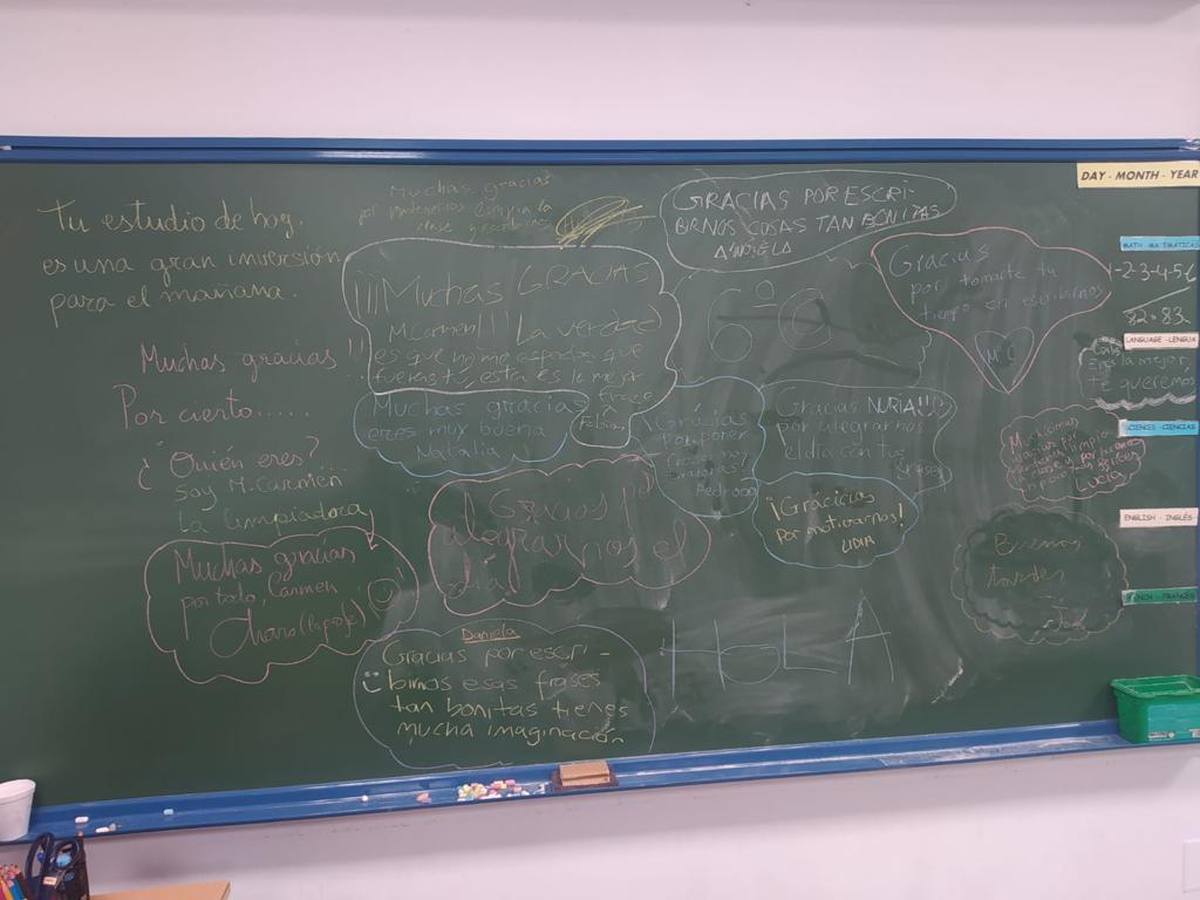 Tu estudio de hoy
es una gran inversión
para el mañana.
Muchas gracias!!
Por cierto......
¿Quién eres?
Soy M.Carmen
La limpiadora
Muchas gracias
por todo, Carmen
Charo (la profe)
Muchas gracias
por
la
clase
¡¡¡Muchas GRACIAS
MCarmen!!! La verdad
es que no me esperaba que
fueras tú, esta es la mejor
frase
Fabián
Muchas gracias
eres muy buena
Natalia
¡Gracias!
alegrarnos el
día
Daniela
Gracias por escri-
birnos esas frases
tan bonitas tienes
mucha imaginación
GRACIAS POR ESCRI-
BIRNOS COSAS TAN BONITAS
ANGELA
Gracias
por poner
Pedrooo
Gracias NURIA!!
por alegrarnos
el día con tus
frases
¡Grácicias
por motivarnos!
LIDIA
HOLA
Gracias
por tomarte tu
tiempo en escribirnos
MªC
Eres la mejor,
te queremos
Lucía
Buenas
tardes
DAY - MONTH - YEAR
MATH - MATEMÁTICAS
1-2-3-4-5-6
82-83
LANGUAGE - LENGUA
SCIENCES - CIENCIAS
ENGLISH - INGLÉS
FRENCH - FRANCÉS